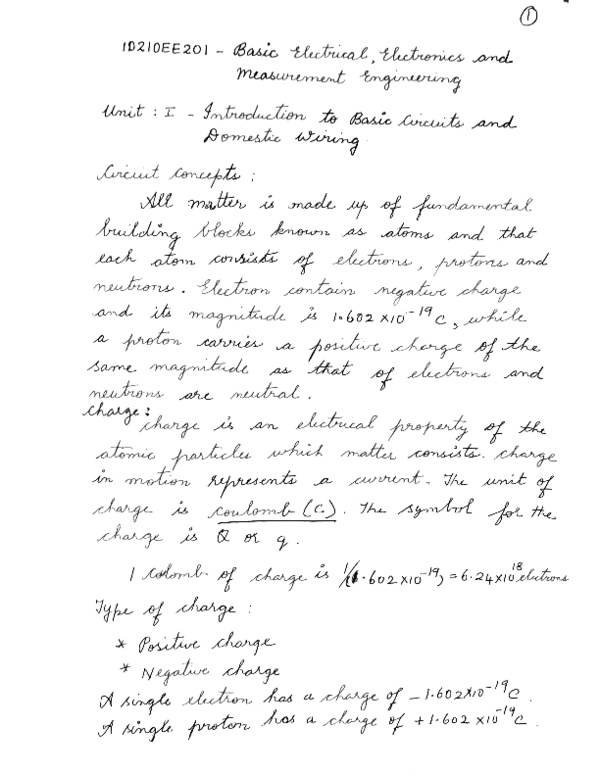 1
1D210EE201 - Basic Electrical, Electronics and
Measurement Engineering
Unit : I - Introduction to Basic Circuits and
Domestic Wiring
Circuit concepts :
All matter is made up of fundamental
building blocks known as atoms and that
each atom consists of electrons, protons and
neutrons. Electron contain negative charge
and its magnitude is 1.602 x10⁻¹⁹ C, while
a proton carries a positive charge of the
same magnitude as that of electrons and
neutrons are neutral.
charge :
charge is an electrical property of the
atomic particles which matter consists. charge
in motion represents a current. The unit of
charge is coulomb (C). The symbol for the
charge is Q or q.
1 colomb. of charge is 1/(1.602 x10⁻¹⁹) = 6.24x10¹⁸ electrons
Type of charge :
* Positive charge
* Negative charge
A single electron has a charge of -1.602x10⁻¹⁹C.
A single proton has a charge of +1.602 x10⁻¹⁹C.